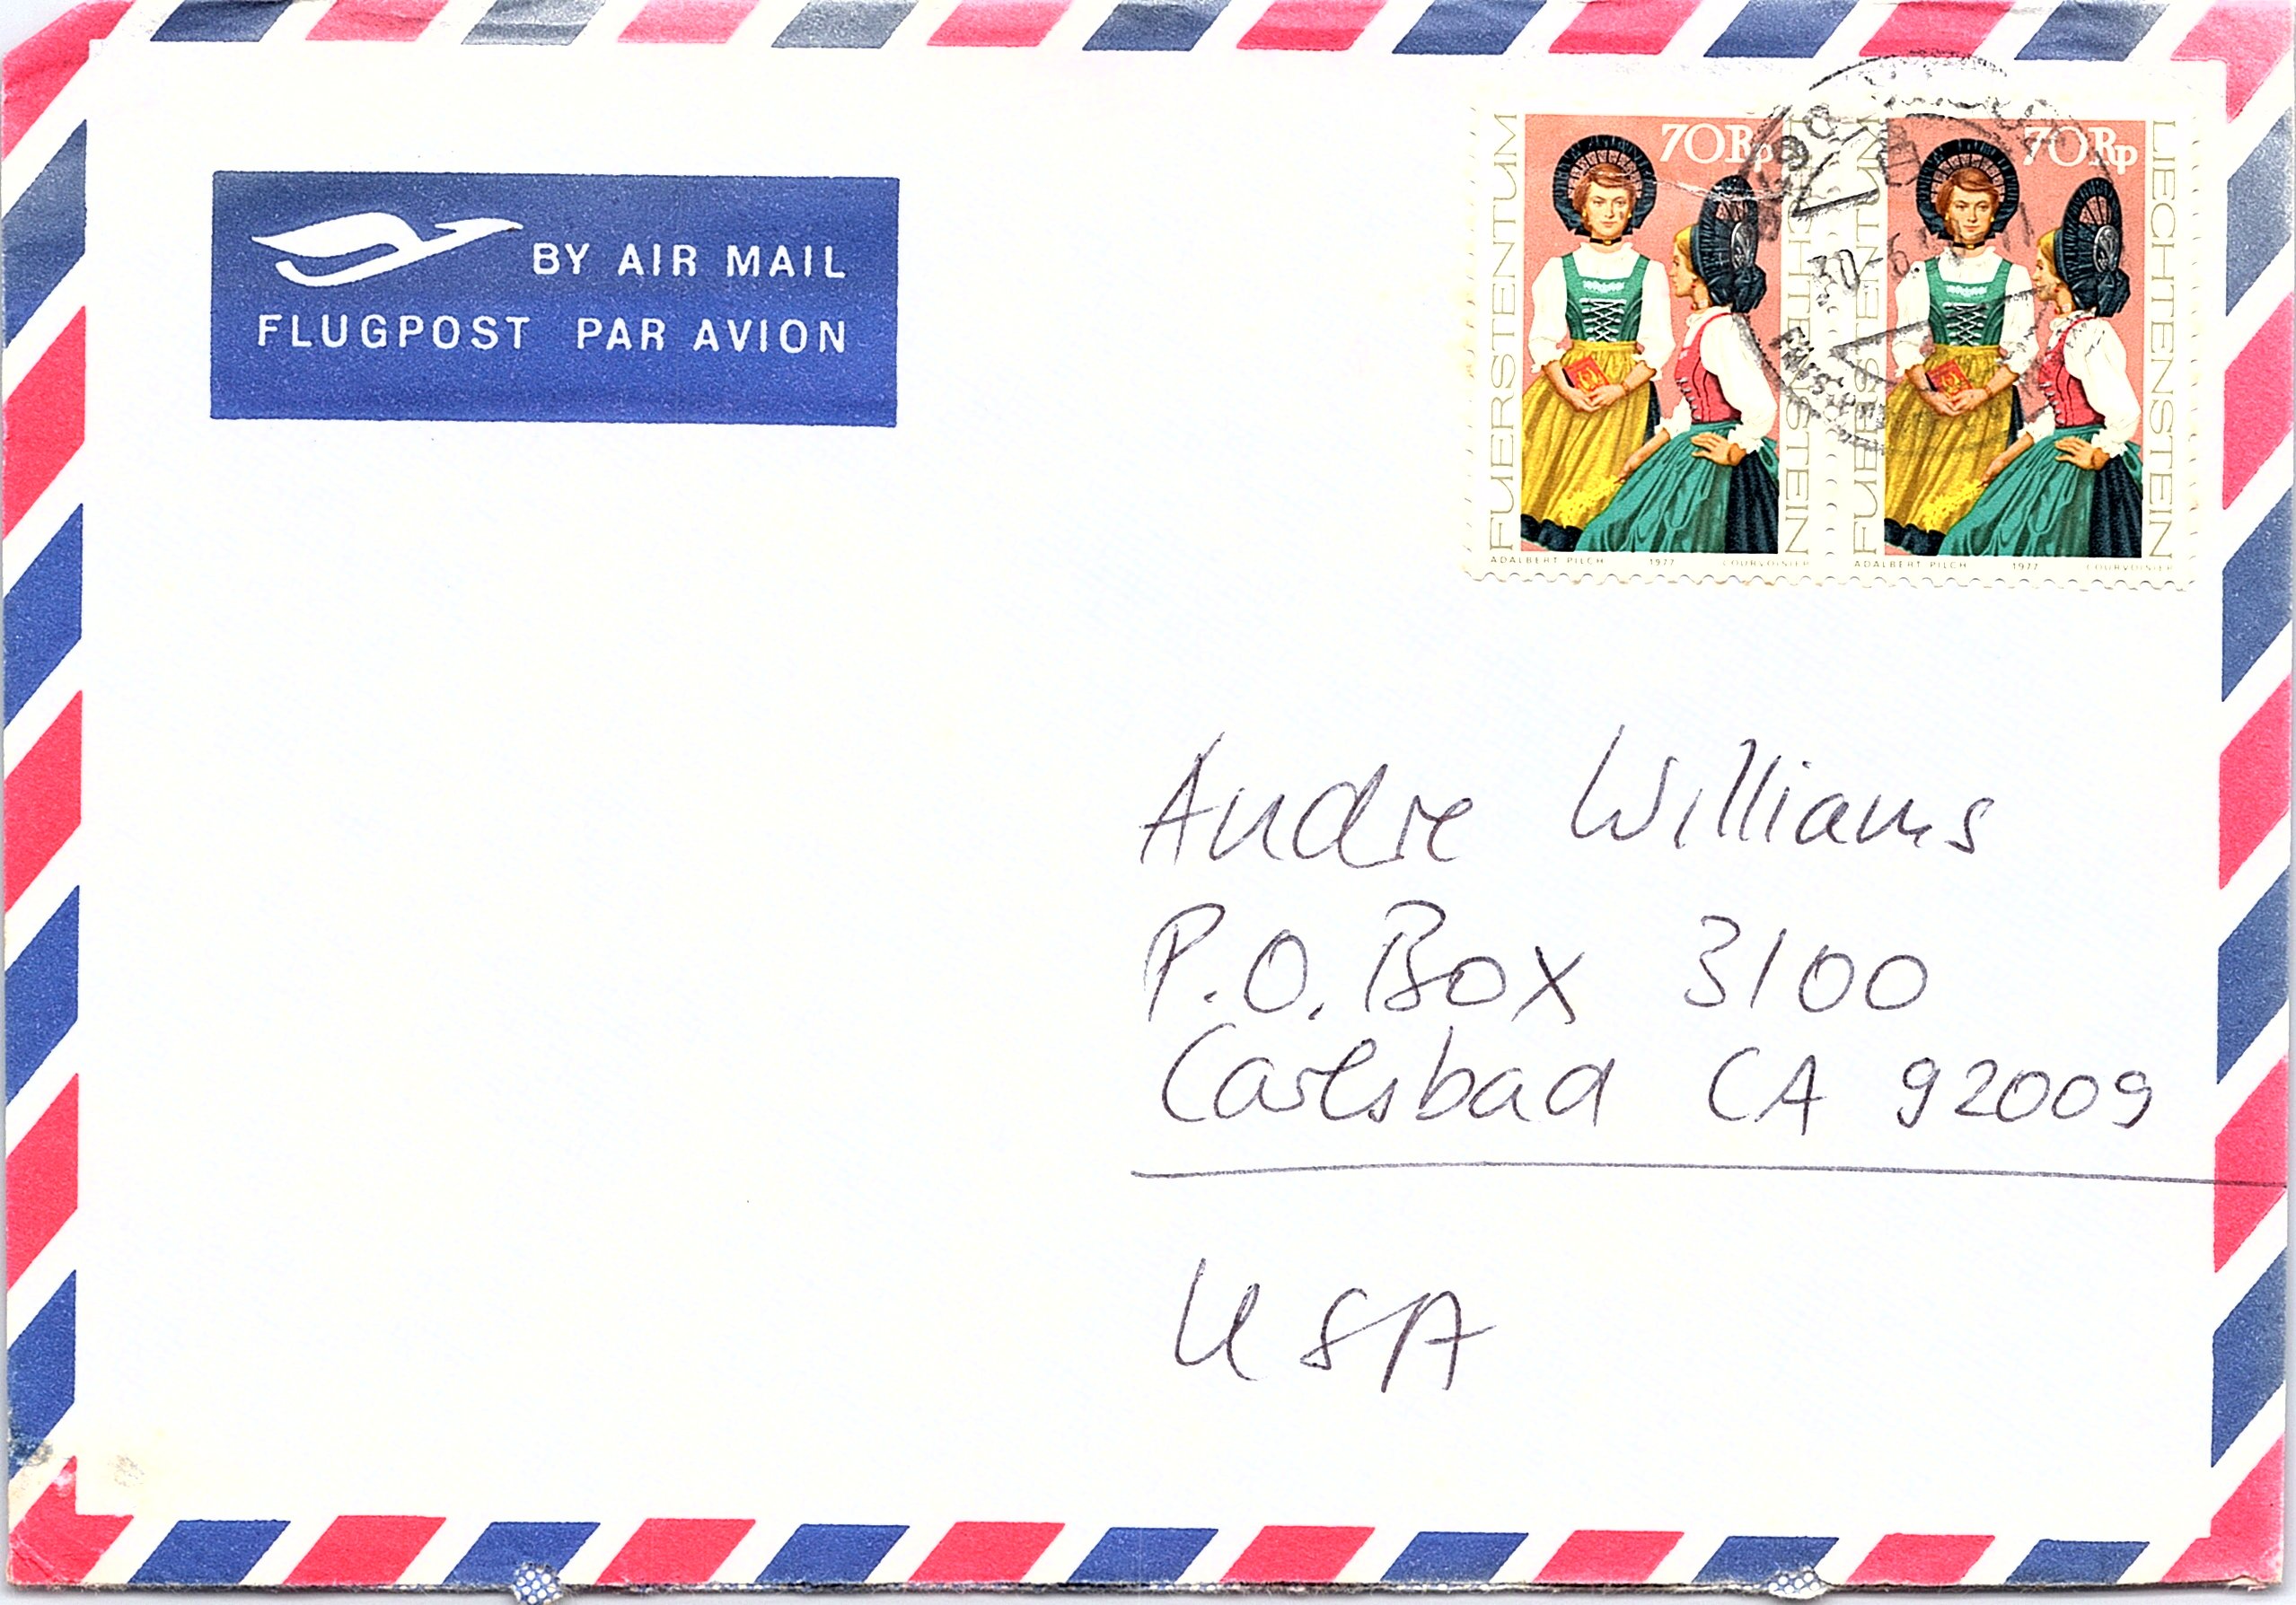 BY AIR MAIL
FLUGPOST PAR AVION
FUERSTENTUM
70Rp
LIECHTENSTEIN
ADALBERT PILCH 1977 COURVOISIER
FUERSTENTUM
70Rp
LIECHTENSTEIN
ADALBERT PILCH 1977 COURVOISIER
Andre Williams
P.O. Box 3100
Carlsbad CA 92009
USA